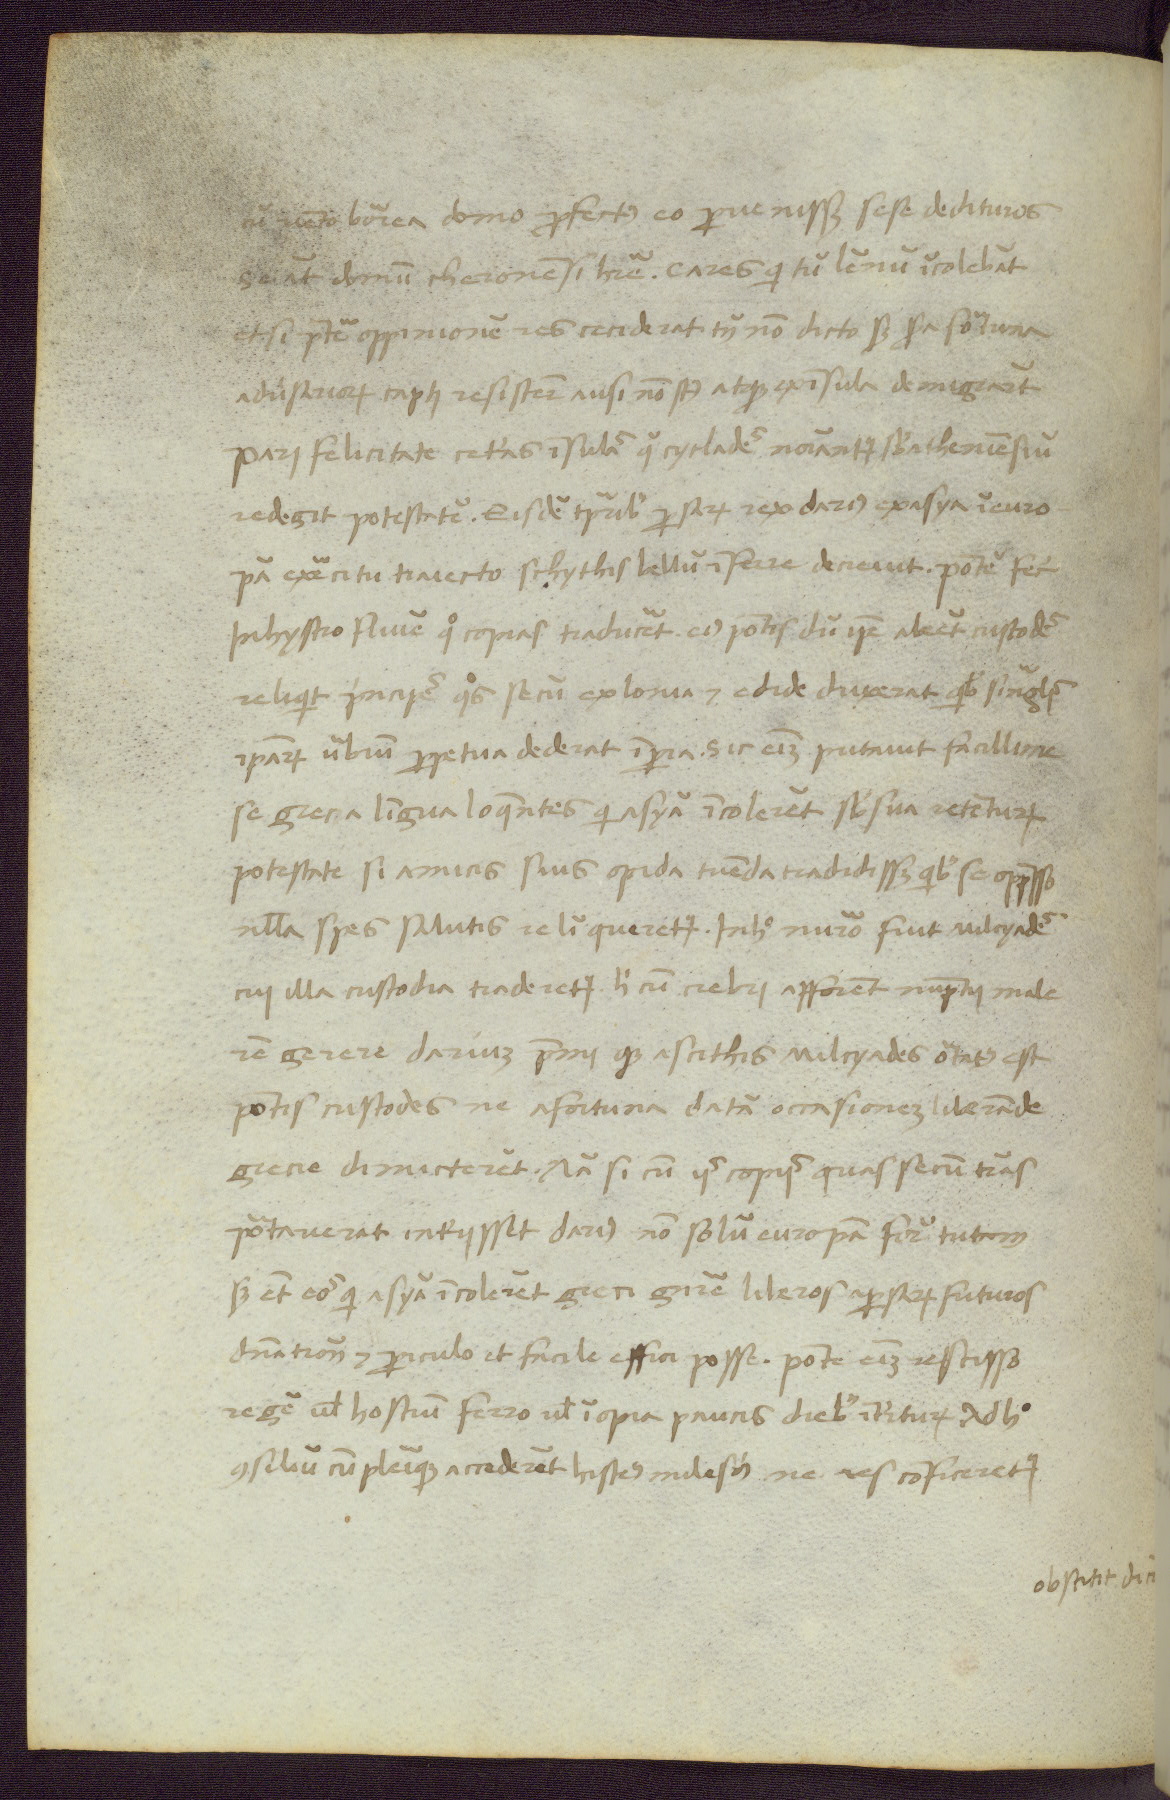 cū uēto borea domo ꝓfectꝰ eo ꝑuenissꝫ sese dedituros
se aūt domū cheronēsi hr̄e. cares qͥ tū lēnū īcolebāt
et si p̄ter̄ oppinionē res ceciderat tn̄ nō dicto sꝫ ꝓsa fortuna
aduersarioꝝ capti resistere ausi nō st̄ atqꝫ ex īsula demigrarūt
pari felicitate ceteras īsulas q̄ cyclades noīantur sb̓ atheniēsiū
redegit potestatē. Eisdē tꝑib; ꝑsarꝝ rex dariꝰ ex asya ī euro
pā exercitu traiecto schythis bellū īferre decreuit. pontē fecit
In hystro flumīe qͦ copias traduceret. eiꝰ pontis dū ip̄e abeēt custodes
reliquit principes qͦs secū ex Ionia ⁊ eolide duxerat qͥb; singulis
ip̄aꝝ urbiū ꝑpetua dederat imꝑia. Sic eīꝫ putauit facillime
se greca lingua loquentes qͥ asyā īcolerēt sb̓ sua retenturꝝ
potestate si amicis suis opida tuenda tradidissꝫ qͥb; se oppresso
nulla spes salutis relinqueretur. In hͦ numero fuit Milcyades
cui illa custodia traderetur. hͥ cū crebri afferrent nuptii male
rē gerere dariuꝫ p̄mi qꝫ a scithis Milcyades ortatꝰ est
pontis custodes ne a fortuna datā occasioneꝫ liberande
grecie dimicterēt. Nā si cū iis copiis quas secū trās
portauerat interiisset dariꝰ nō solū europā fore tutam
sꝫ et eos qͥ asyā īcolerēt greci gn̄e liberos a ꝑsarꝝ futuros
dn̄atione ⁊ ꝑiculo et facile effici posse. ponte eīꝫ rescisso
regē uel hostiū ferro uel īopia paucis dieb; īteriturꝝ. Ad hͦ
ꝯsiliū cū pleriqꝫ accederēt histeꝰ milesiꝰ ne res conficeretur
obstitit dicē